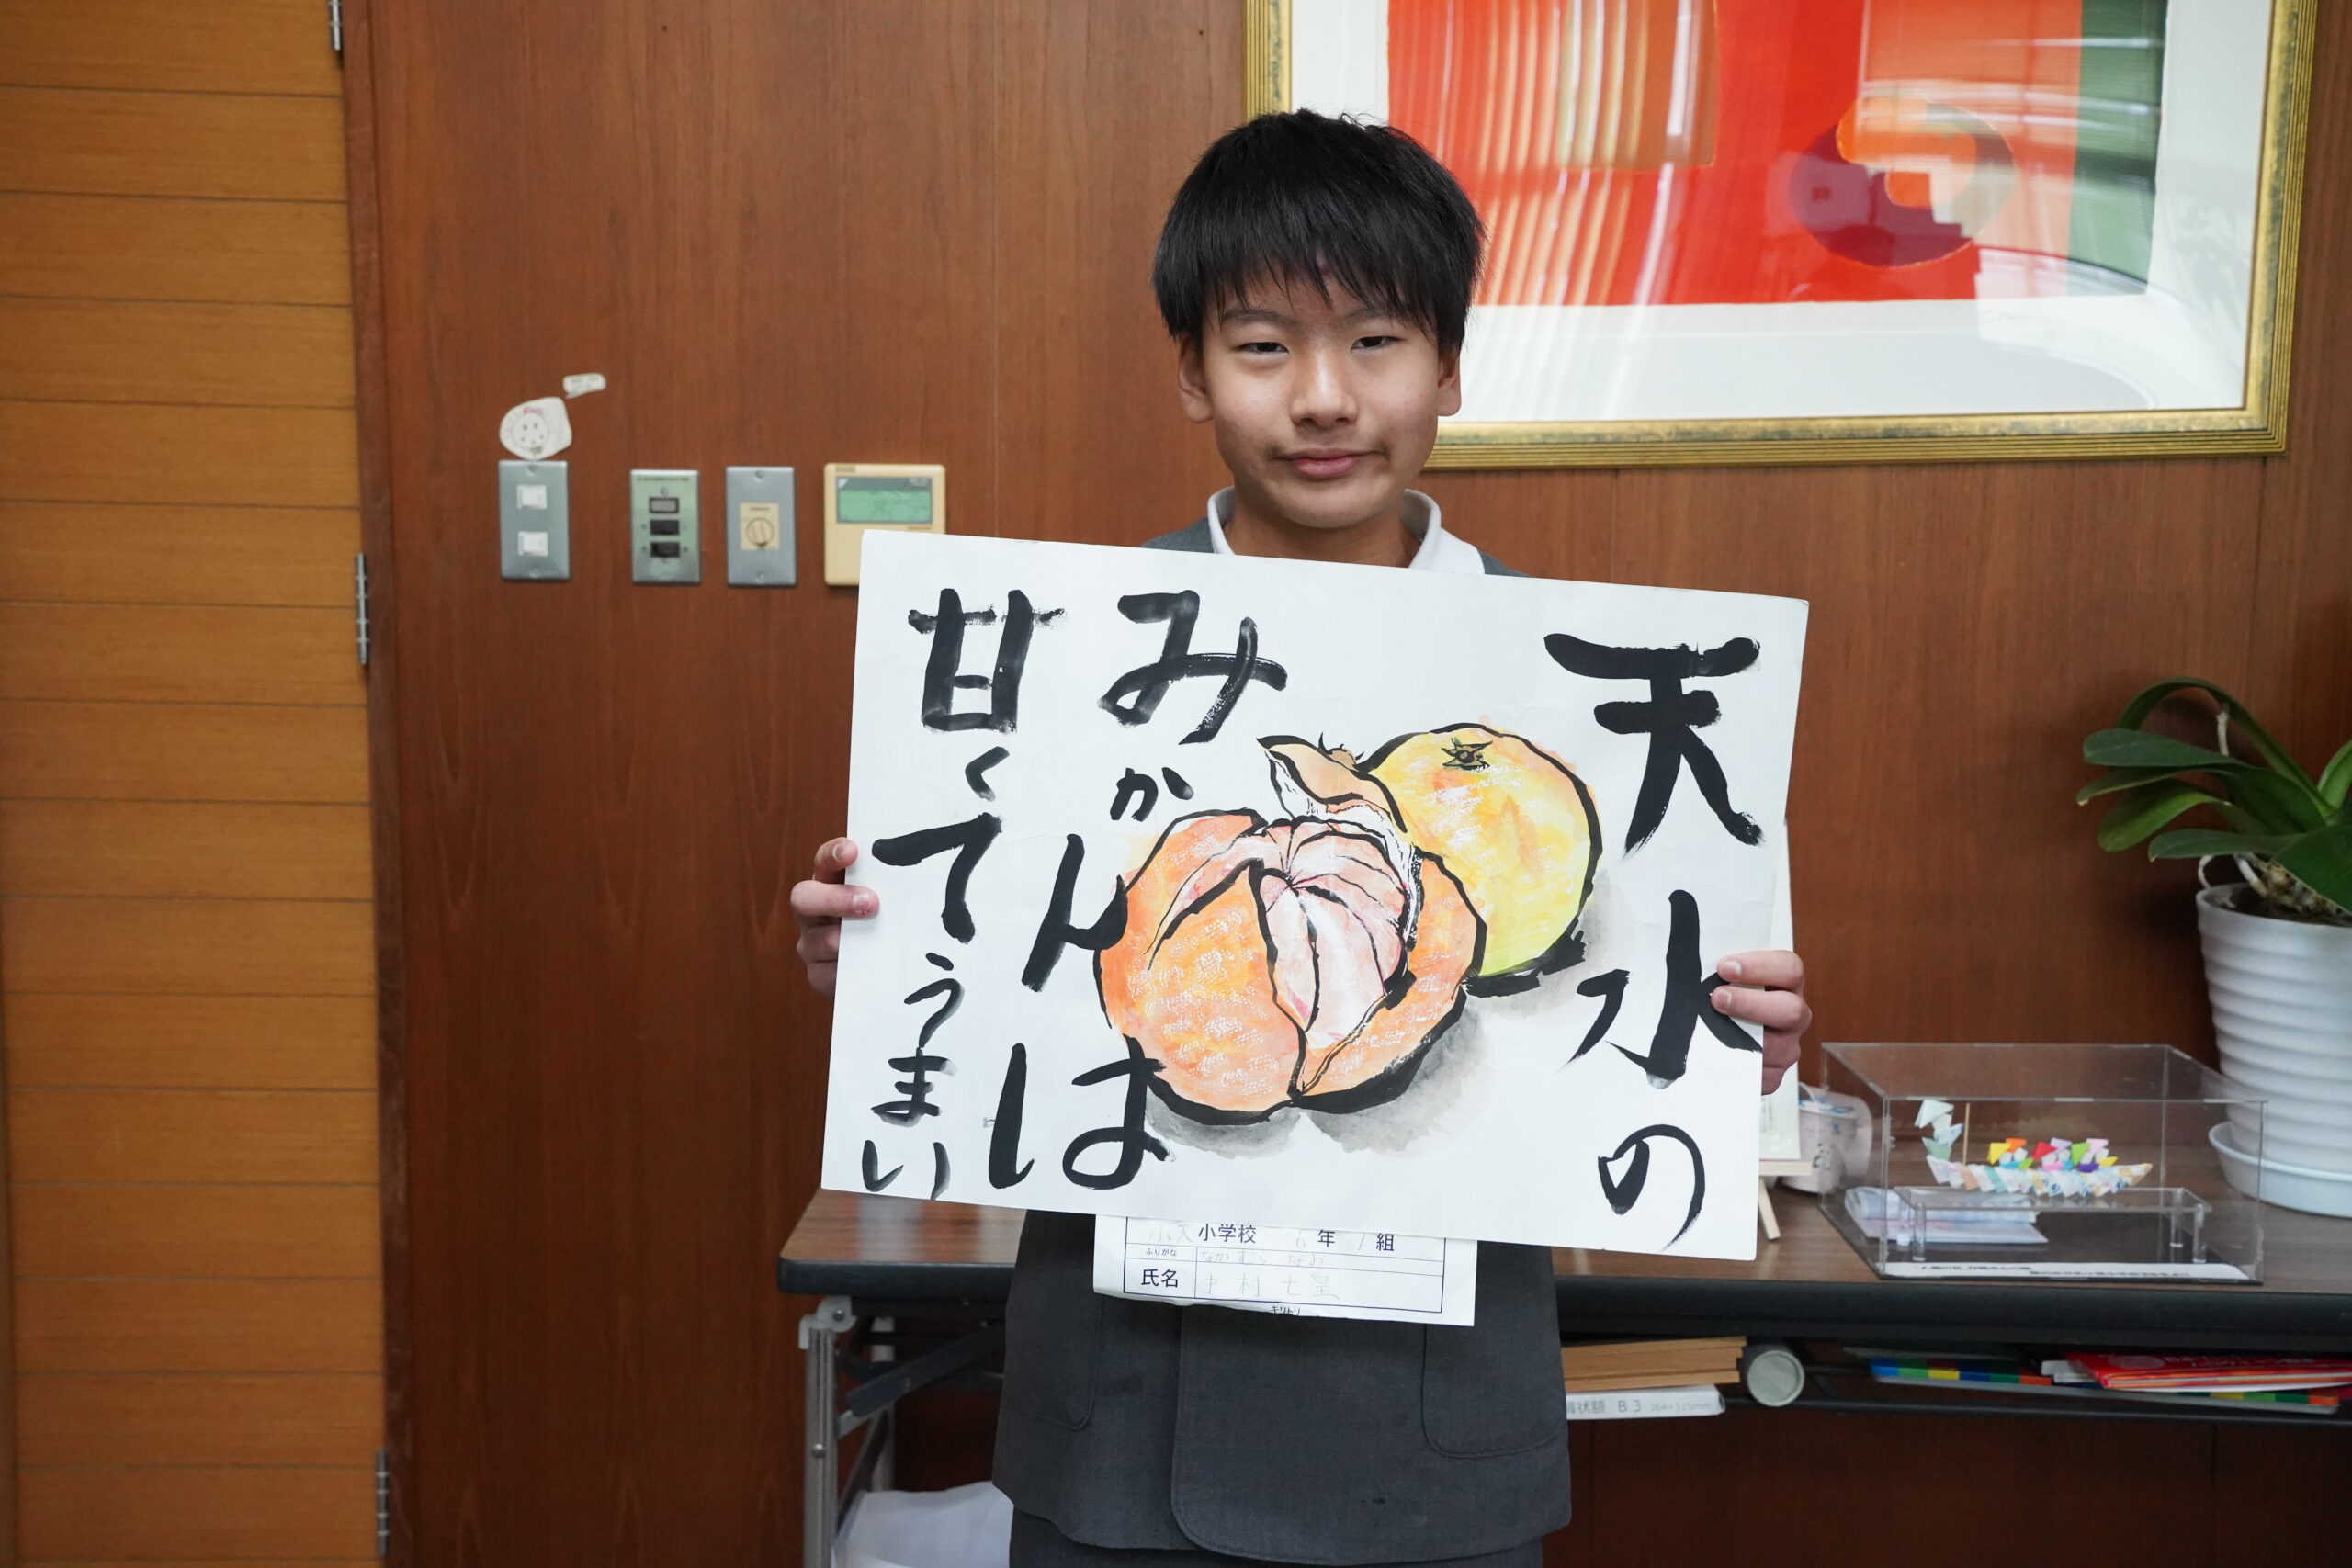 天水の
みかんは
甘くてうまい
小天小学校 6年 1組
ふりがな なかむら なお
氏名 中村七星
キリトリ
賞状額 B3 364×515mm